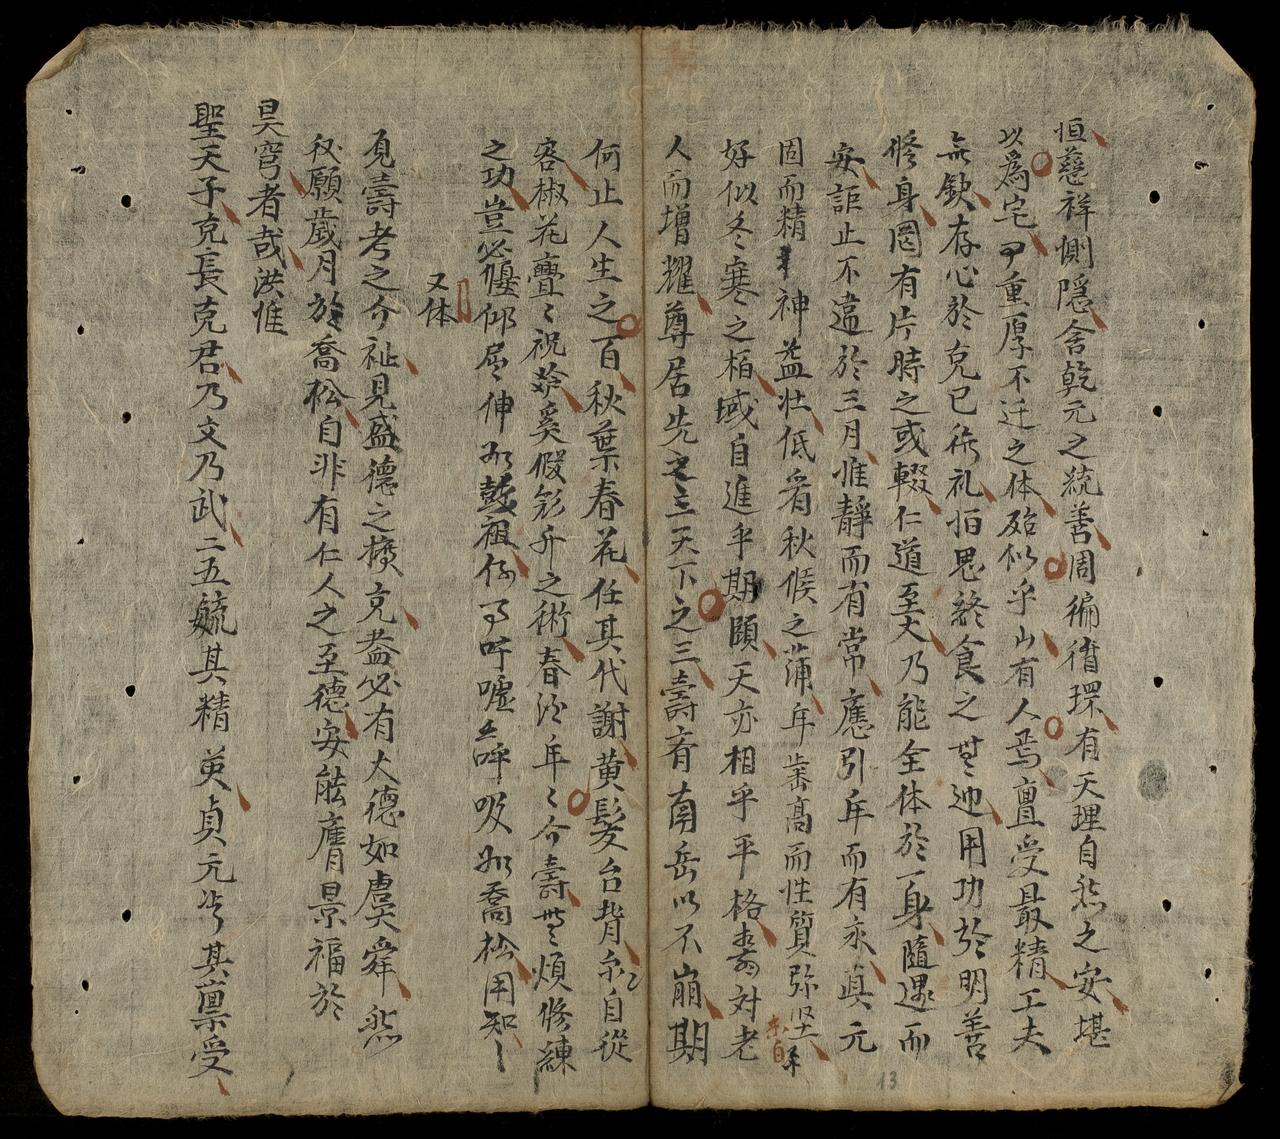 恒慈祥惻隱含乾元之統善周徧循環有天理自然之安堪
以爲宅丐重厚不迁之体殆似乎山有人焉亶受最精工夫
無欽存心於克已復礼怕思終食之無迎用功於明善
修身罔有片時之或輟仁道至大乃能全体於一身隨遇而
安詎止不違於三月惟靜而有常應引年而有永眞元
固而精神益壮低看秋候之蒲年耑高而性質弥坚
好似冬寒之栢域自進乎期頤天亦相乎平格寿对老
人而增耀尊居先之三天下之三壽育南岳以不崩期
何止人生之百秋葉春花任其代謝黄髮台背自從
容椒花疊〻祝奚假彩升之術春洛年〻介壽無煩修練
之功豈必偃仰屈伸如彭祖何吁噓呼吸如喬松用知
又体
覓壽考之介祉見盛德之擴克盖必有大德如虞舜然
秋願歲月於喬松自非有仁人之至德安能膺景福於
昊穹者哉洪惟
聖天子克長克君乃文乃武二五毓其精英貞元其禀受
13